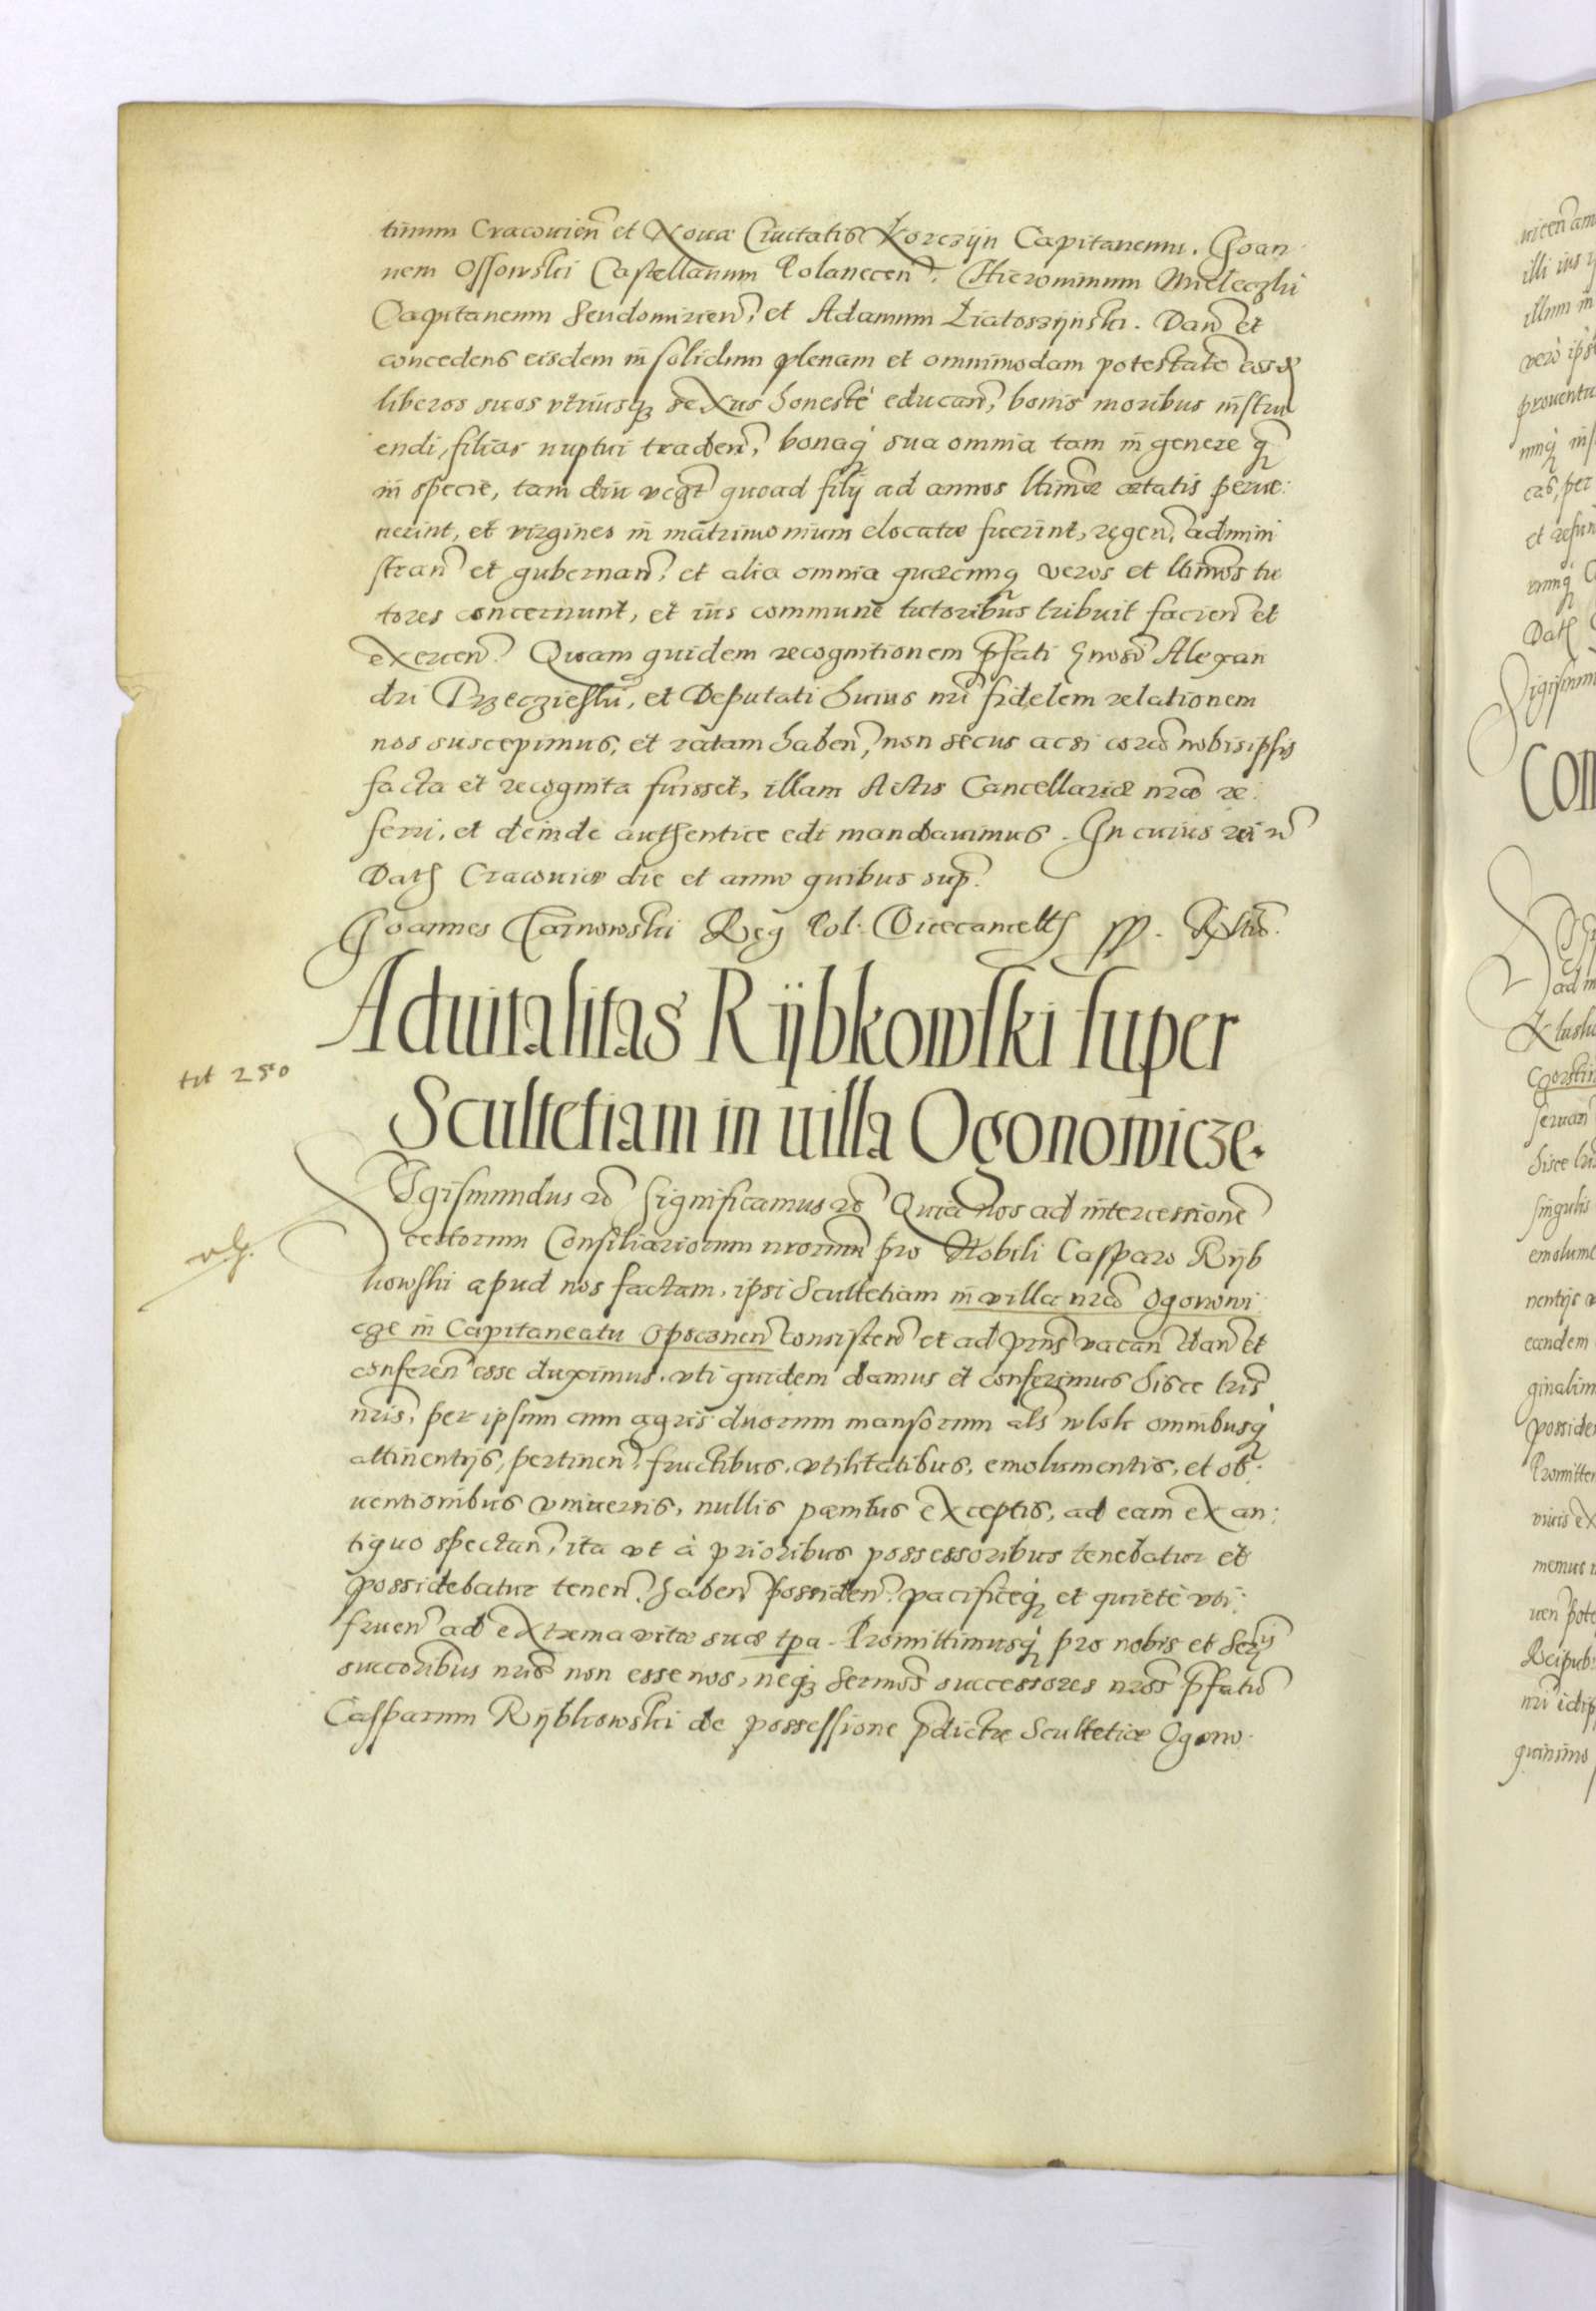 tinum Cracovieñ et Novæ Civitatis Korczÿn Capitaneum. Joan
nem Ossowski Castellanum Polanecen̄. Hieronimum Mieleczki
Capitaneum Sendomirien̄, et Adamum Liatoszÿnski. Dan̄ et
concedens eisdem in solidum plenam et omnimodam potestatē eosd
liberos suos vtriusq sexus honestè educan̄, bonis moribus instru
endi, filias nuptui traden̄, bonaq sua omnia tam in genere q̄
in specie, tam diu regt quoad filÿ ad annos ltimæ ætatis perue:
nerint, et virgines in matrimonium elocatæ fuerint, regen̄, admini
stran̄ et gubernan̄, et alia omnia quæcunq veros et ltimos tu
tores concernunt, et ius commune tutoribus tribuit facien̄ et
exercen̄. Quam quidem recognitionem p̄fati Gnosi Alexan
dri Przeczieski, et Deputati huius nri fidelem relationem
nos suscepimus, et ratam haben̄, non secus acsi corā nobis ipsis
facta et recognita fuisset, illam Actis Cancellariæ nræ re:
ferri, et deinde authentice edi mandauimus. In cuius rei
Dat Cracoviæ die et anno quibus sup̄.
Joannes Tarnowski Reg Pol. Vicecancell
Aduitalitas Rÿbkowski super
tit 250
Scultetiam in uilla Ogonowicze.
Sigismundus Significamus Quia nos ad intercessionē
certorum Consiliariorum nrorum pro Nobili Casparo Rÿb
kowski apud nos factam, ipsi Scultetiam in villa nrā Ogonowi
cze in Capitaneatu Opocznen̄ consisten̄ et ad prns vacan̄ dan̄ et
conferen̄ esse duximus. vti quidem damus et conferimus hisce lris
nris, per ipsum cum agris duorum mansorum als wlok omnibusq
attinentÿs, pertinen̄, fructibus, vtilitatibus, emolumentis, et ob:
uentionibus vniuersis, nullis pænitus exceptis, ad eam ex an:
tiquo spectan̄, ita vt à prioribus possessoribus tenebatur et
possidebatur tenen̄, haben̄ possiden̄, pacificeq et quietè vti
fruen̄ ad extrema vitæ suæ tpa. Promittimusq pro nobis et Sermis
succoribus nris non esse nos, neq Sermos successores nros p̄fatū
Casparum Rÿbkowski de possessione p̄dictæ Scultetiæ Ogono